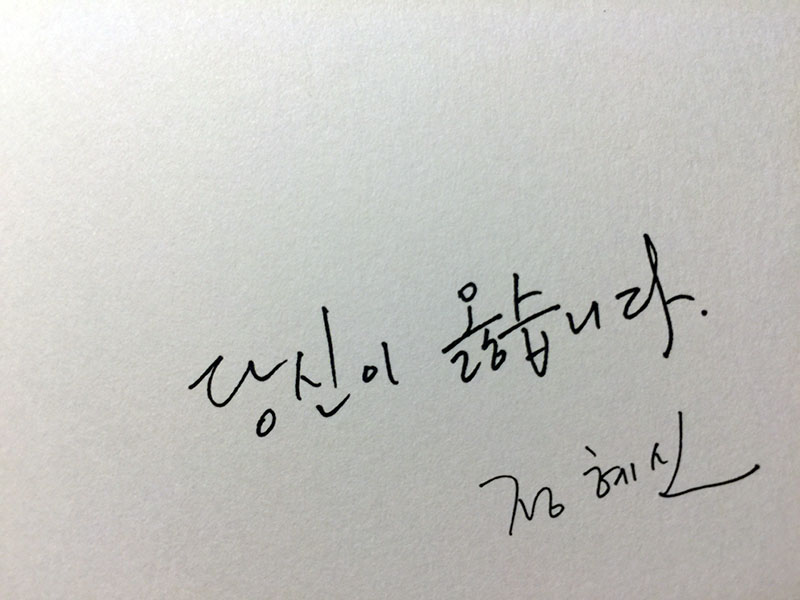 당신이 옳습니다.
정혜신